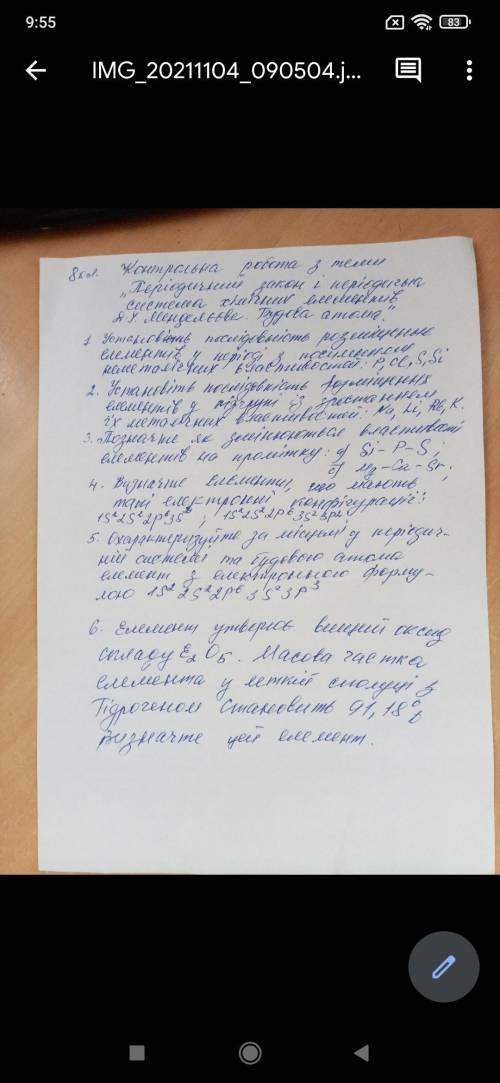 9:55
83
IMG_20211104_090504.j...
8 кл. Контрольна робота з теми
„Періодичний закон і періодична
система хімічних елементів
Д.І. Менделєєва. Будова атома."
1. Установіть послідовність розміщення
елементів у періоді з посиленням
неметалічних властивостей: P, Cl, S, Si
2. Установіть послідовність розміщення
елементів у підгрупі із зростанням
їх металічних властивостей: Na, Li, Rb, K.
3. Позначте як змінюються властивості
елементів на проміжку: а) Si – P – S;
б) Mg – Ca – Sr;
4. Визначте елементи, що мають
такі електронні конфігурації:
1s² 2s² 2p⁶ 3s² ; 1s² 2s² 2p⁶ 3s² 3p⁴
5. Охарактеризуйте за місцем у періодич-
ній системі та будовою атома
елемент з електронною форму-
лою 1s² 2s² 2p⁶ 3s² 3p³
6. Елемент утворює вищий оксид
складу E₂O₅. Масова частка
елемента у леткій сполуці з
Гідрогеном становить 91,18%
Визначте цей елемент.